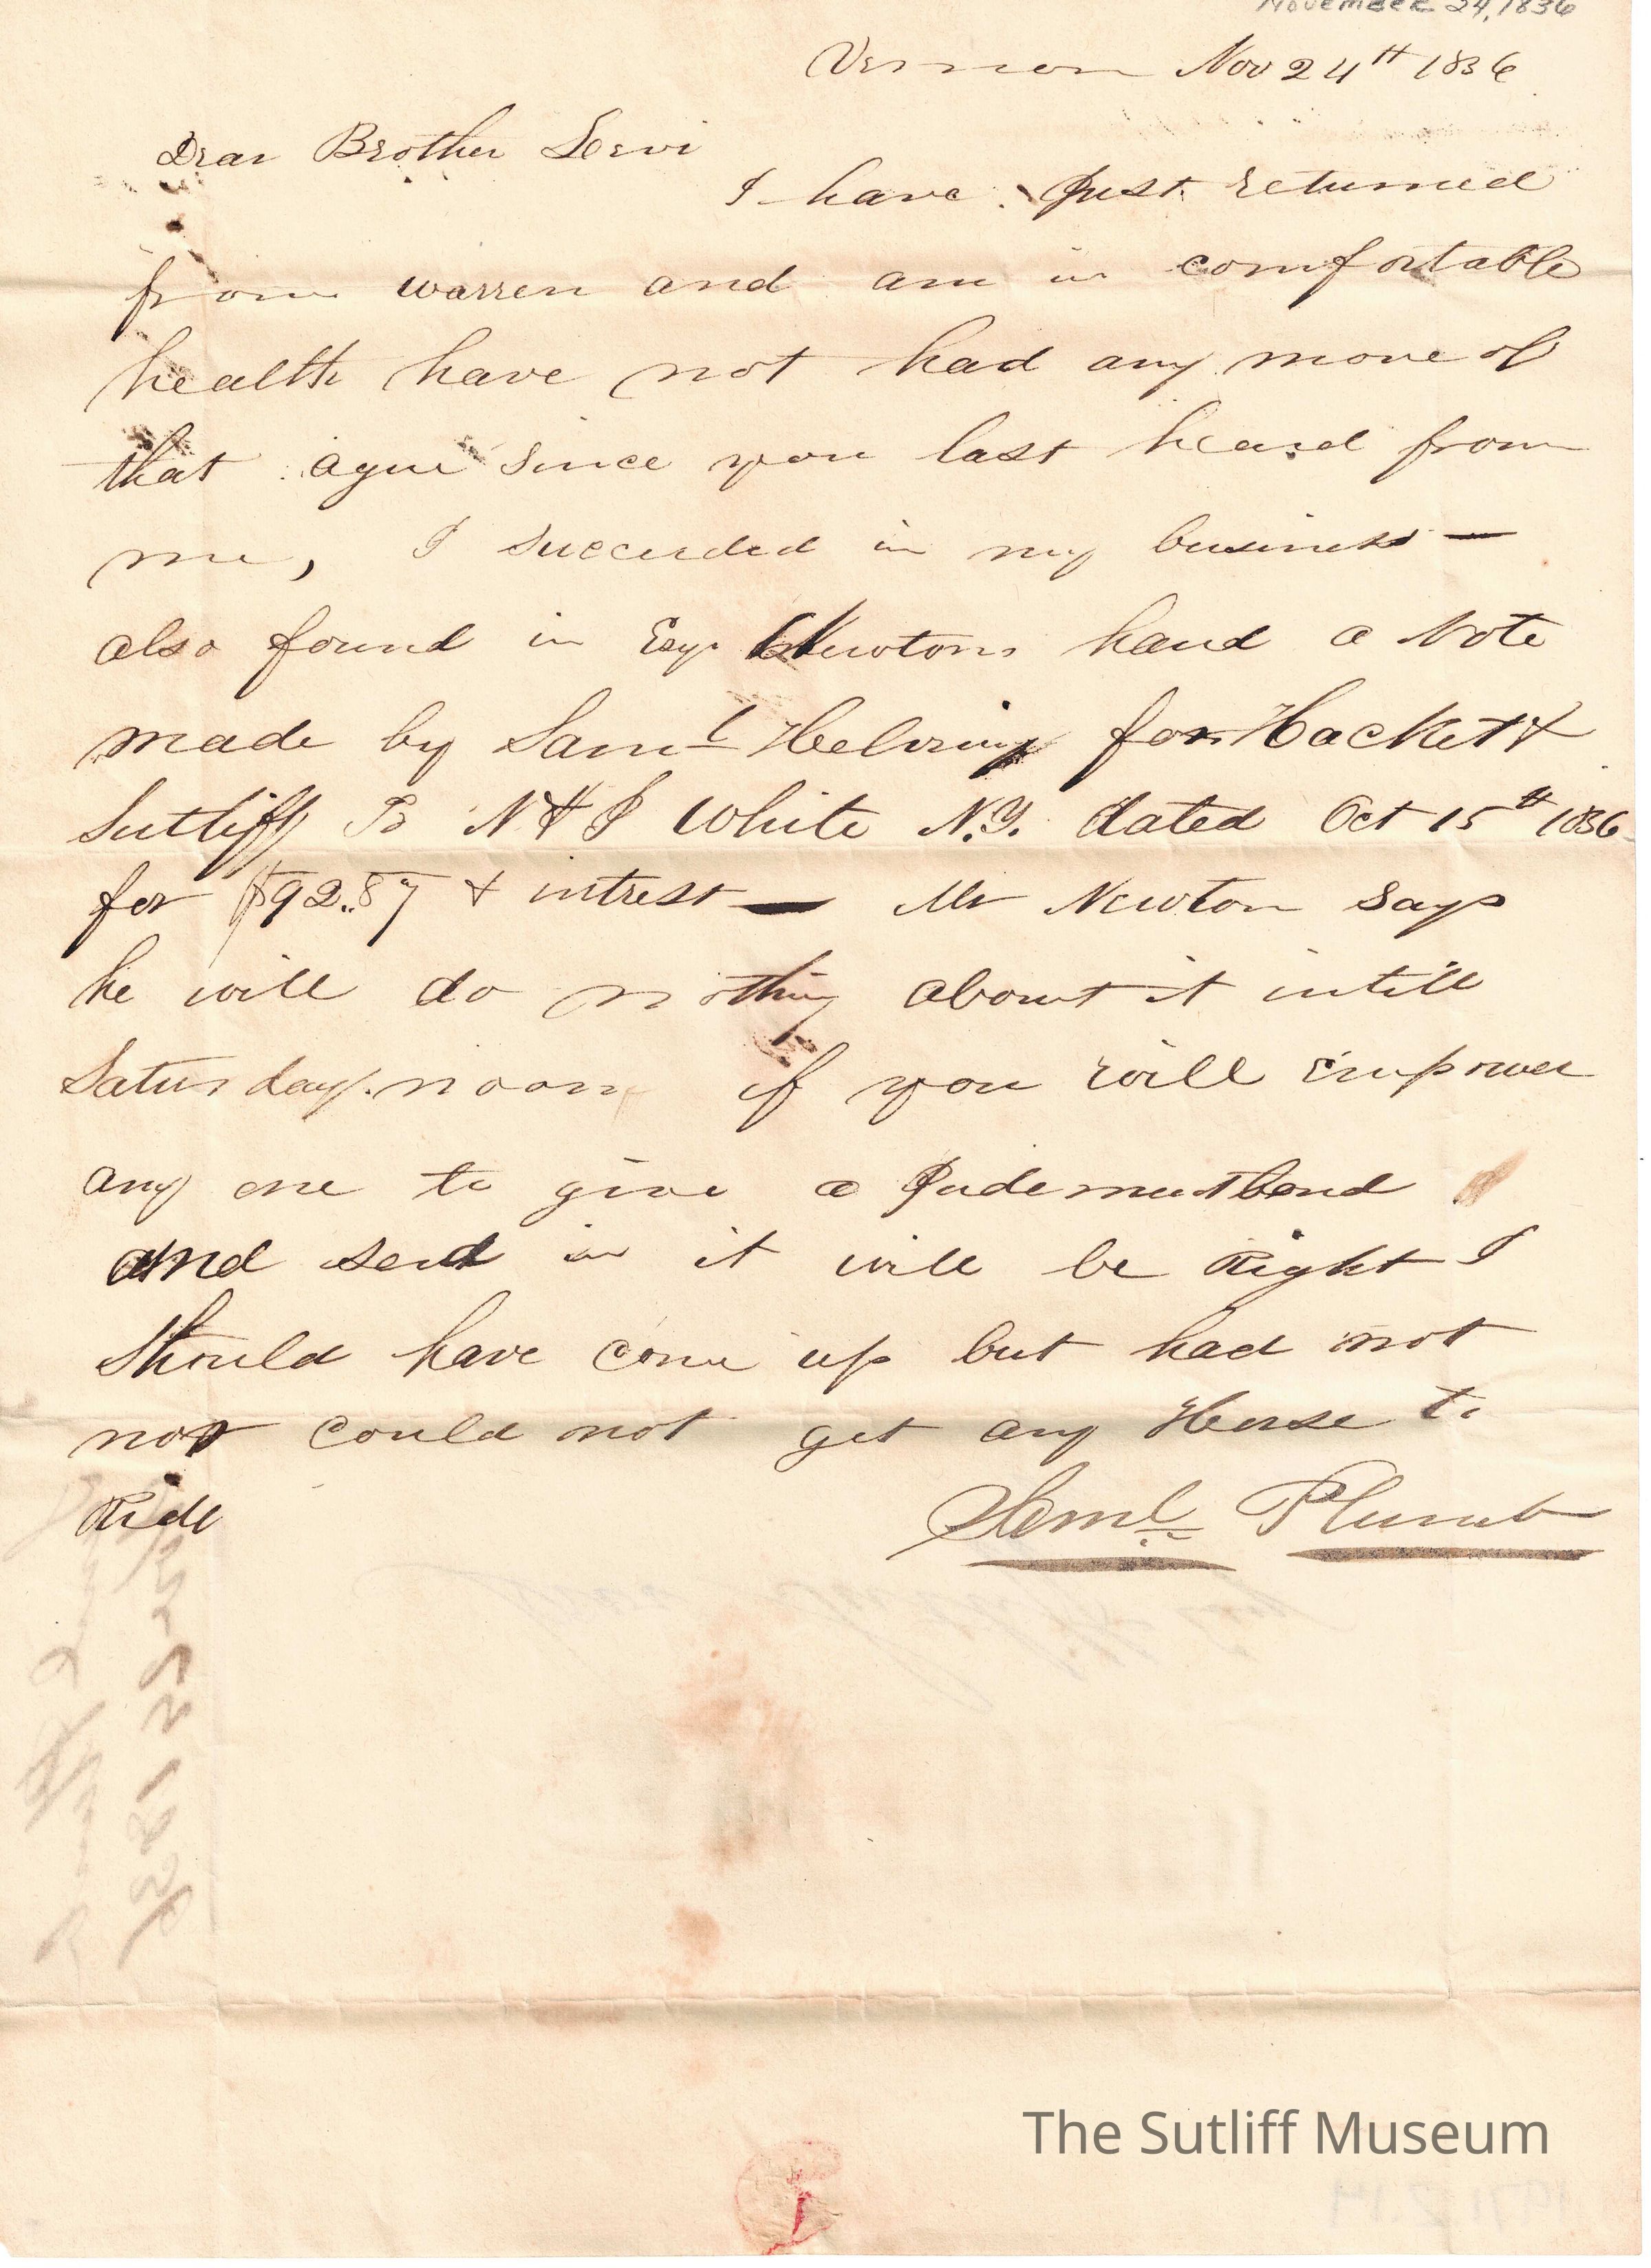 November 24, 1836
Vernon Nov 24th 1836
Dear Brother Levi
I have Just returned
from warren and am in comfortable
health have not had any more of
that ague since you last heard from
me, I succeeded in my business —
also found in Esqr Newtons hand a Note
made by Saml for Hackett &
Sutliff To N & J White N.Y. dated Oct 15th 1836
for $92..87 & intrest — Mr Newton says
he will do nothing about it intill
Saturday noon if you will Empower
any one to give a
and send in it will be Right I
should have come up but had not
nor could not get any Horse to
Ride
Saml Plumb
The Sutliff Museum